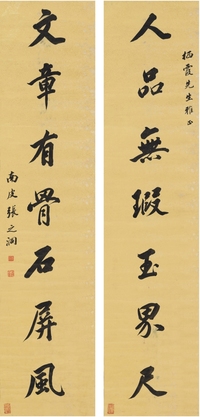 栖霞先生雅正
人品無瑕玉界尺
文章有骨石屏風
南皮張之洞